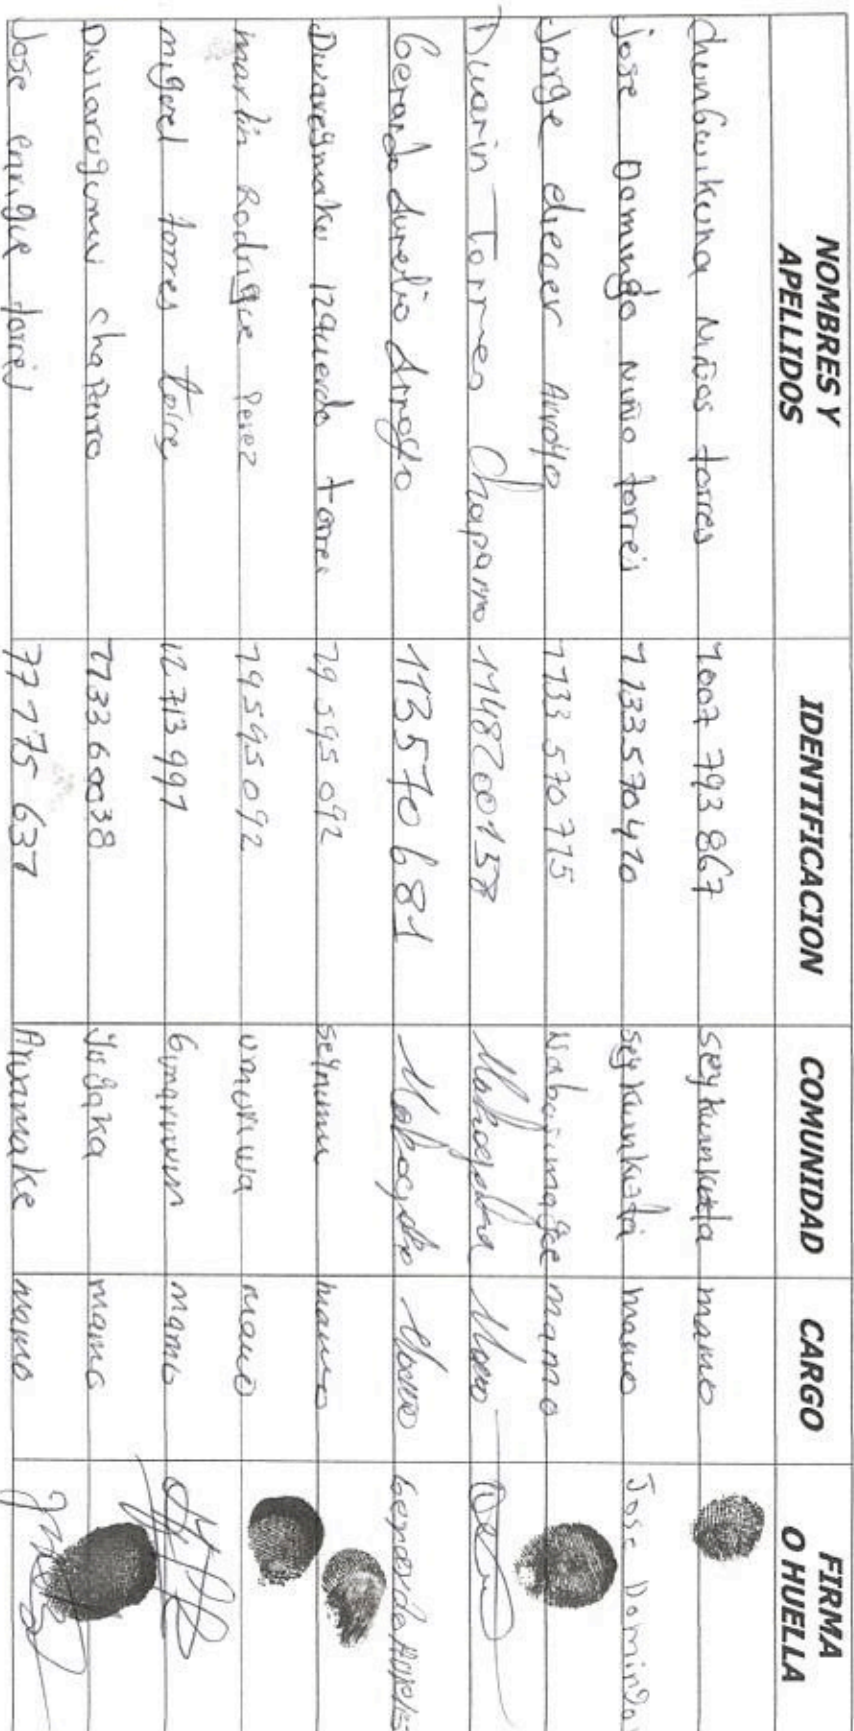 NOMBRES Y APELLIDOS IDENTIFICACION COMUNIDAD CARGO FIRMA O HUELLA
Niños torres 1007 793 867 seykunkuta mamo
Jose Domingo Niño torres 1133570410 seykunkuta mamo Jose Domingo
Jorge eliecer Arroyo 1133 570 715 Nabusimake mamo
Duarin Torres Chaparro 1148200158 Mamo
Gerardo Aurelio Arroyo 113570681 Mamo
Izquierdo torres 19 595 092 seynimu mamo
martin Rodrigue Perez 19595092 umuriwa mamo
miguel torres 12 713 991 Gunaruwun mamo
chaparro mamo
Jose enrique torres 77 175 637 Arwamake mamo